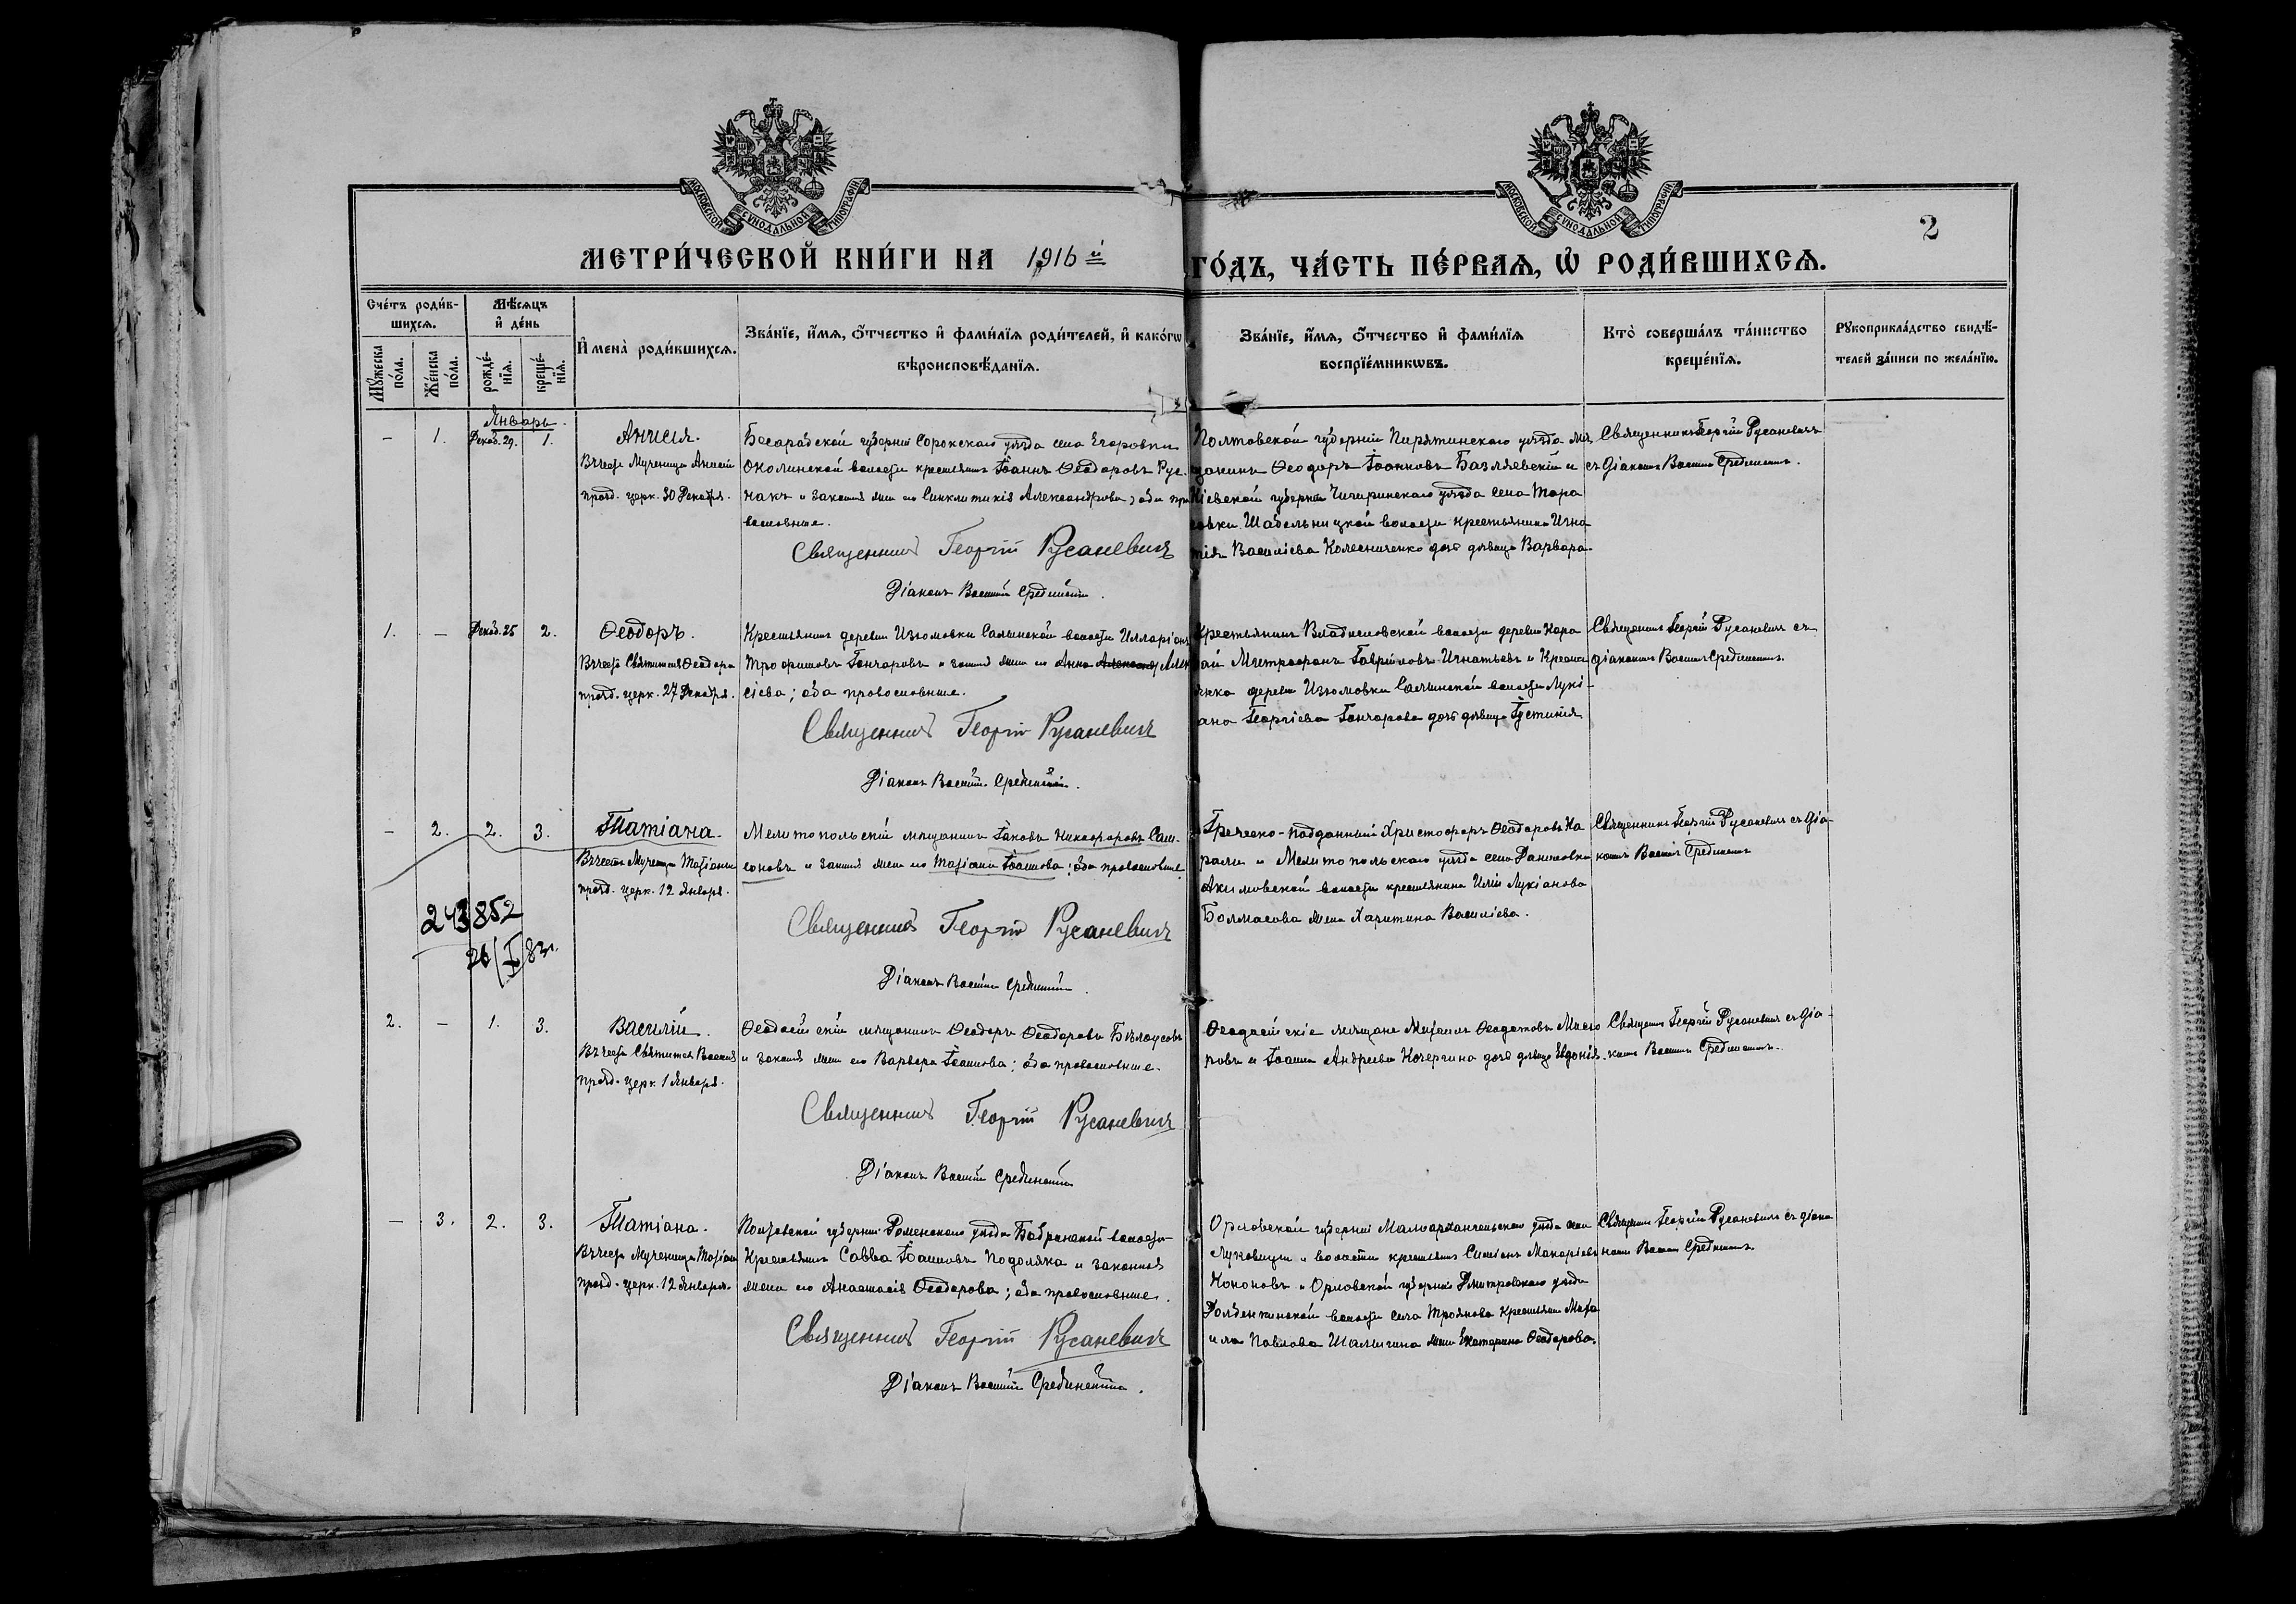 МОСКОВСКОЙ СѴНОДАЛЬНОЙ ТИПОГРАФІИ
МОСКОВСКОЙ СѴНОДАЛЬНОЙ ТИПОГРАФІИ
2
МЕТРИ́ЧЕСКОЙ КНИ́ГИ НА 1916 й ГО́ДЪ, ЧА́СТЬ ПЕ́РВАѦ, Ѽ РОДИ́ВШИХСѦ.
Сче́тъ роди́в-
шихсѧ.
Мѣ́сѧцъ
и де́нь
Мꙋ́жеска по́ла.
Же́нска по́ла.
рожде́-нїѧ.
креще́-нїѧ.
И҆мена̀ роди́вшихсѧ.
Зва́нїе, и҆́мѧ, ѻ҆́тчество и҆ фами́лїѧ роди́телей, и҆ како́гѡ
вѣроисповѣ́данїѧ.
Зва́нїе, и҆́мѧ, ѻ҆́тчество и҆ фами́лїѧ
воспрїе́мникѡвъ.
Кто̀ соверша́лъ та́инство
креще́нїѧ.
Рꙋкоприкла́дство свидѣ́-
телей за́писи по жела́нїю.
Январь.
– 1. Декаб. 29. 1.
Анисія.
Въ честь Мученицы Анисіи
празд. церк. 30 Декабря.
Бесарабской губерніи Сорокскаго уѣзда села Егоровки
Околинской волости крестьянинъ Іоаннъ Ѳеодоровъ Рус-
накъ и законная жена его Синклитикія Александрова; оба пра
вославные.
Священникъ Георгій Русаневичъ
Діаконъ Василій Срединскій.
Полтавской губерніи Пирятинскаго уѣзда мѣ
щанинъ Ѳеодоръ Іоанновъ Базлѣевскій и
Кіевской губерніи Чигиринскаго уѣзда села Тара
совки Шабельницкой волости крестьянина Игна
тія Василіева Колесниченко дочь дѣвица Варвара.
Священникъ Георгій Русаневичъ
съ діакономъ Василіемъ Срединскимъ.
1. – Декаб. 25 2.
Ѳеодоръ.
Въ честь Святителя Ѳеодора
празд. церк. 27 Декабря.
Крестьянинъ деревни Изюмовки Салынской волости Илларіонъ
Трофимовъ Гончаровъ и законная жена его Анна Алек
сіева; оба православные.
Священникъ Георгій Русаневичъ
Діаконъ Василій Срединскій.
Крестьянинъ Владиславской волости деревни Кара
Митрофанъ Гавріиловъ Игнатьевъ и Кресть
янка деревни Изюмовки Салынской волости Лукі-
ана Георгіева Гончарова дочь дѣвица Іустинія
Священникъ Георгій Русаневичъ съ
діакономъ Василіемъ Срединскимъ.
– 2. 2. 3.
Татіана.
Въ честь Мученицы Татіаны
празд. церк. 12 Января.
243852
26/X 83г.
Мелитопольскій мѣщанинъ Іаковъ Никифоровъ Сам-
соновъ и законная жена его Татіана Іоаннова; оба православные.
Священникъ Георгій Русаневичъ
Діаконъ Василій Срединскій.
Греческо-подданный Христофоръ Ѳеодоровъ Ка
рали и Мелитопольскаго уѣзда села Даниловки
Акимовской волости крестьянина Иліи Лукіанова
Болмасова жена Харитина Василіева.
Священникъ Георгій Русаневичъ съ діа-
кономъ Василіемъ Срединскимъ
2. – 1. 3.
Василій.
Въ честь Святителя Василія
празд. церк. 1 Января.
Ѳеодосійскій мѣщанинъ Ѳеодоръ Ѳеодоровъ Бѣлоусовъ
и законная жена его Варвара Іоаннова; оба православные.
Священникъ Георгій Русаневичъ
Діаконъ Василій Срединскій
Ѳеодосійскіе мѣщане Михаилъ Ѳеодотовъ
ровъ и Іоанна Андреева Кочергина дочь дѣвица Евдокія.
Священникъ Георгій Русаневичъ съ діа-
кономъ Василіемъ Срединскимъ.
– 3. 2. 3.
Татіана.
Въ честь Мученицы Татіаны
празд. церк. 12 Января.
Полтавской губерніи Роменскаго уѣзда Бобрикской волости
Крестьянинъ Савва Іоанновъ Подоляка и законная
жена его Анастасія Ѳеодорова; оба православные.
Священникъ Георгій Русаневичъ
Діаконъ Василій Срединскій.
Орловской губерніи Малоархангельскаго уѣзда села
Луковицы и волости крестьянинъ Симеонъ Макаріевъ
Кононовъ и Орловской губерніи Дмитровскаго уѣзда
Долбенкинской волости села Троянова крестьянина Миха
ила Павлова Шалыгина жена Екатерина Ѳеодорова.
Священникъ Георгій Русаневичъ съ діако
номъ Василіемъ Срединскимъ